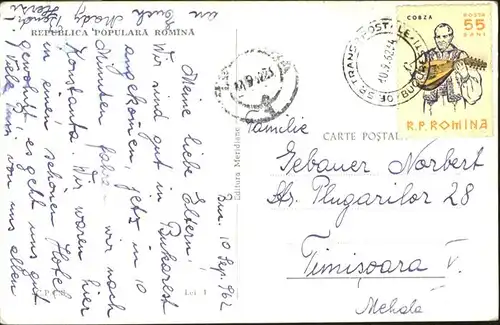 REPUBLICA POPULARA ROMINA
CARTE POSTALA
Editura Meridiane
Lei 1
COBZA
POSTA
55
BANI
R.P. ROMINA
Buc. 10 Sep. 962
Meine liebe Eltern!
Wir sind gut in Bukarest
angekommen jetz in 10
Minuten fahren wir nach
Konstanta. Wir waren hier
in einem schönen Hotel
gewohnt, es geht uns gut
Viele
von uns allen
an Euch
Familie
Gebauer Norbert
Str. Plugarilor 28
Timişoara V.
Mehala